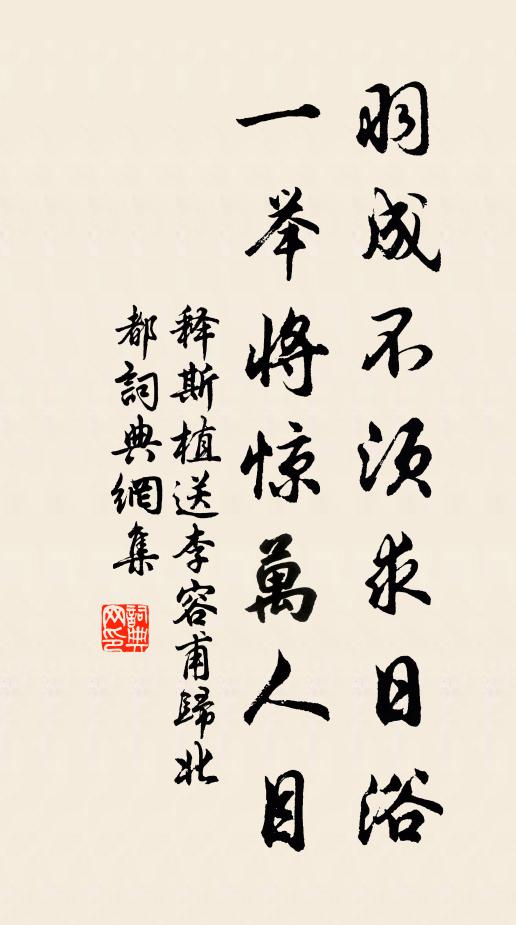 羽成不须求日浴
一举将惊萬人目
释斯植送李容甫歸北
都詞典網集
詞典网印